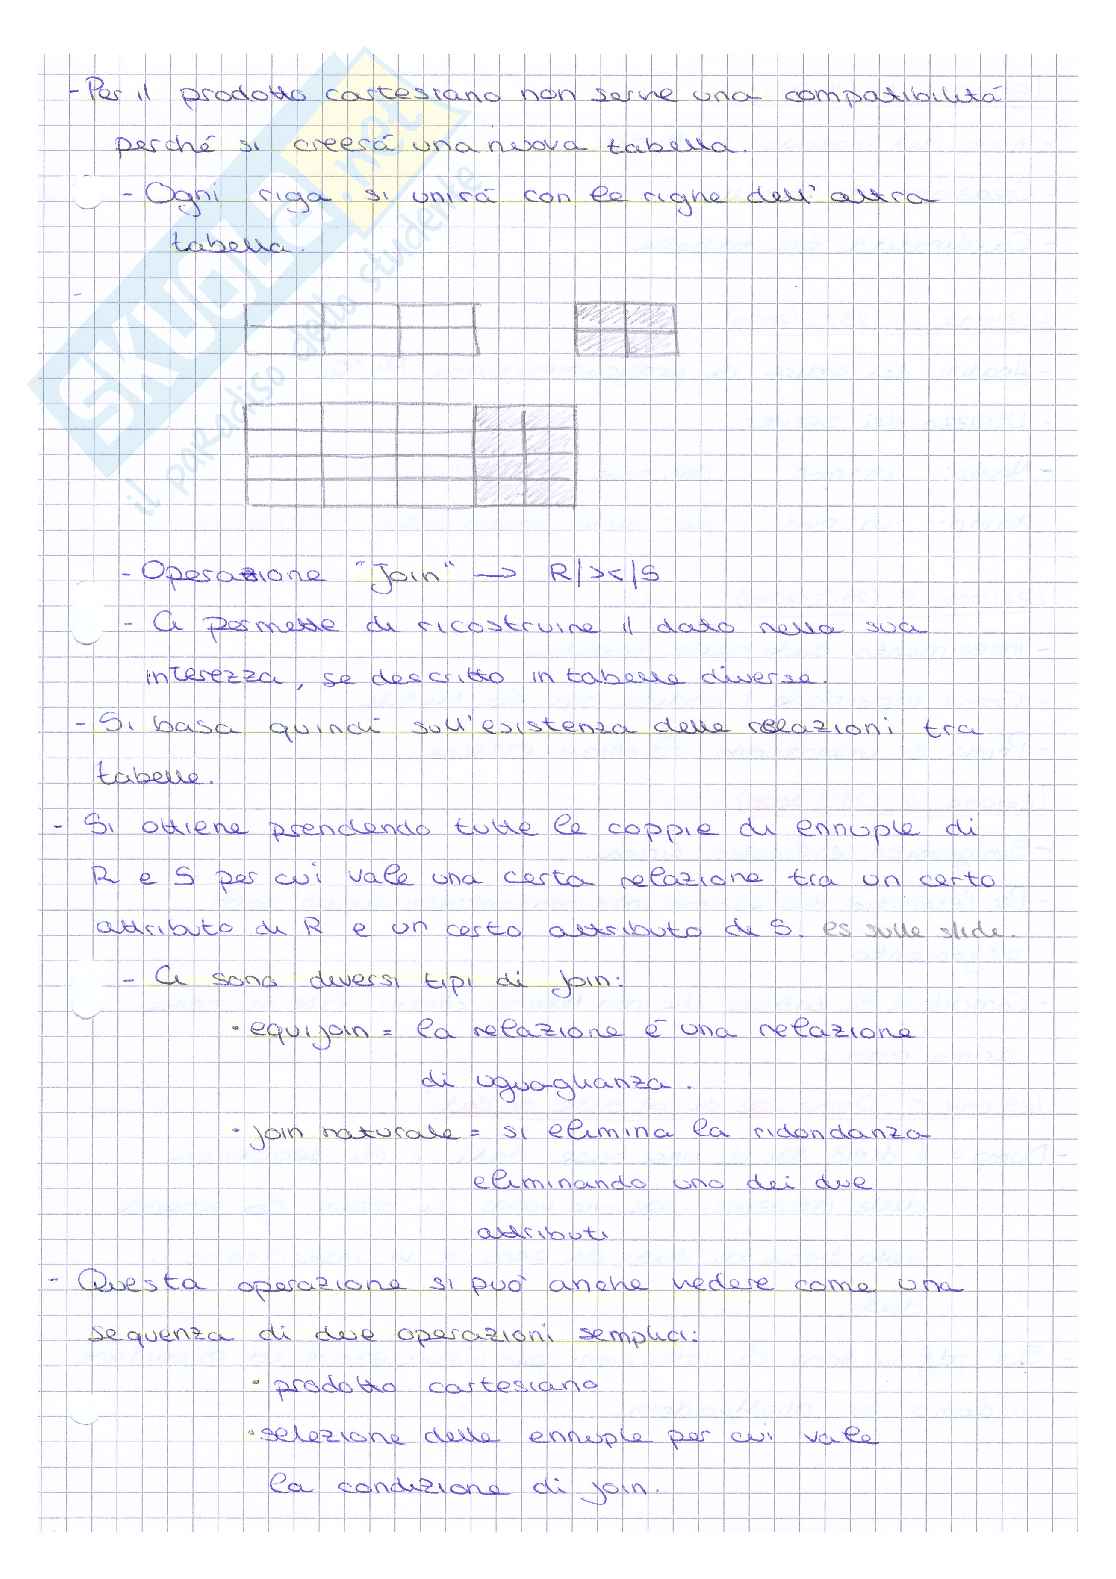 - Per il prodotto cartesiano non serve una compatibilitá
perché si creerá una nuova tabella.
- Ogni riga si unirá con le righe dell'altra
tabella.
- Operazione "join" → R|><|S
- Ci permette di ricostruire il dato nella sua
interezza, se descritto in tabelle diverse.
- Si basa quindi sull'esistenza delle relazioni tra
tabelle.
- Si ottiene prendendo tutte le coppie di ennuple di
R e S per cui vale una certa relazione tra un certo
attributo di R e un certo attributo di S. es sulle slide.
- Ci sono diversi tipi di join:
• equijoin = la relazione é una relazione
di uguaglianza.
• join naturale = si elimina la ridondanza
eliminando uno dei due
attributi
- Questa operazione si puó anche vedere come una
sequenza di due operazioni semplici:
• prodotto cartesiano
• selezione delle ennuple per cui vale
la condizione di join.
SKUOLA.net
il paradiso dello studente